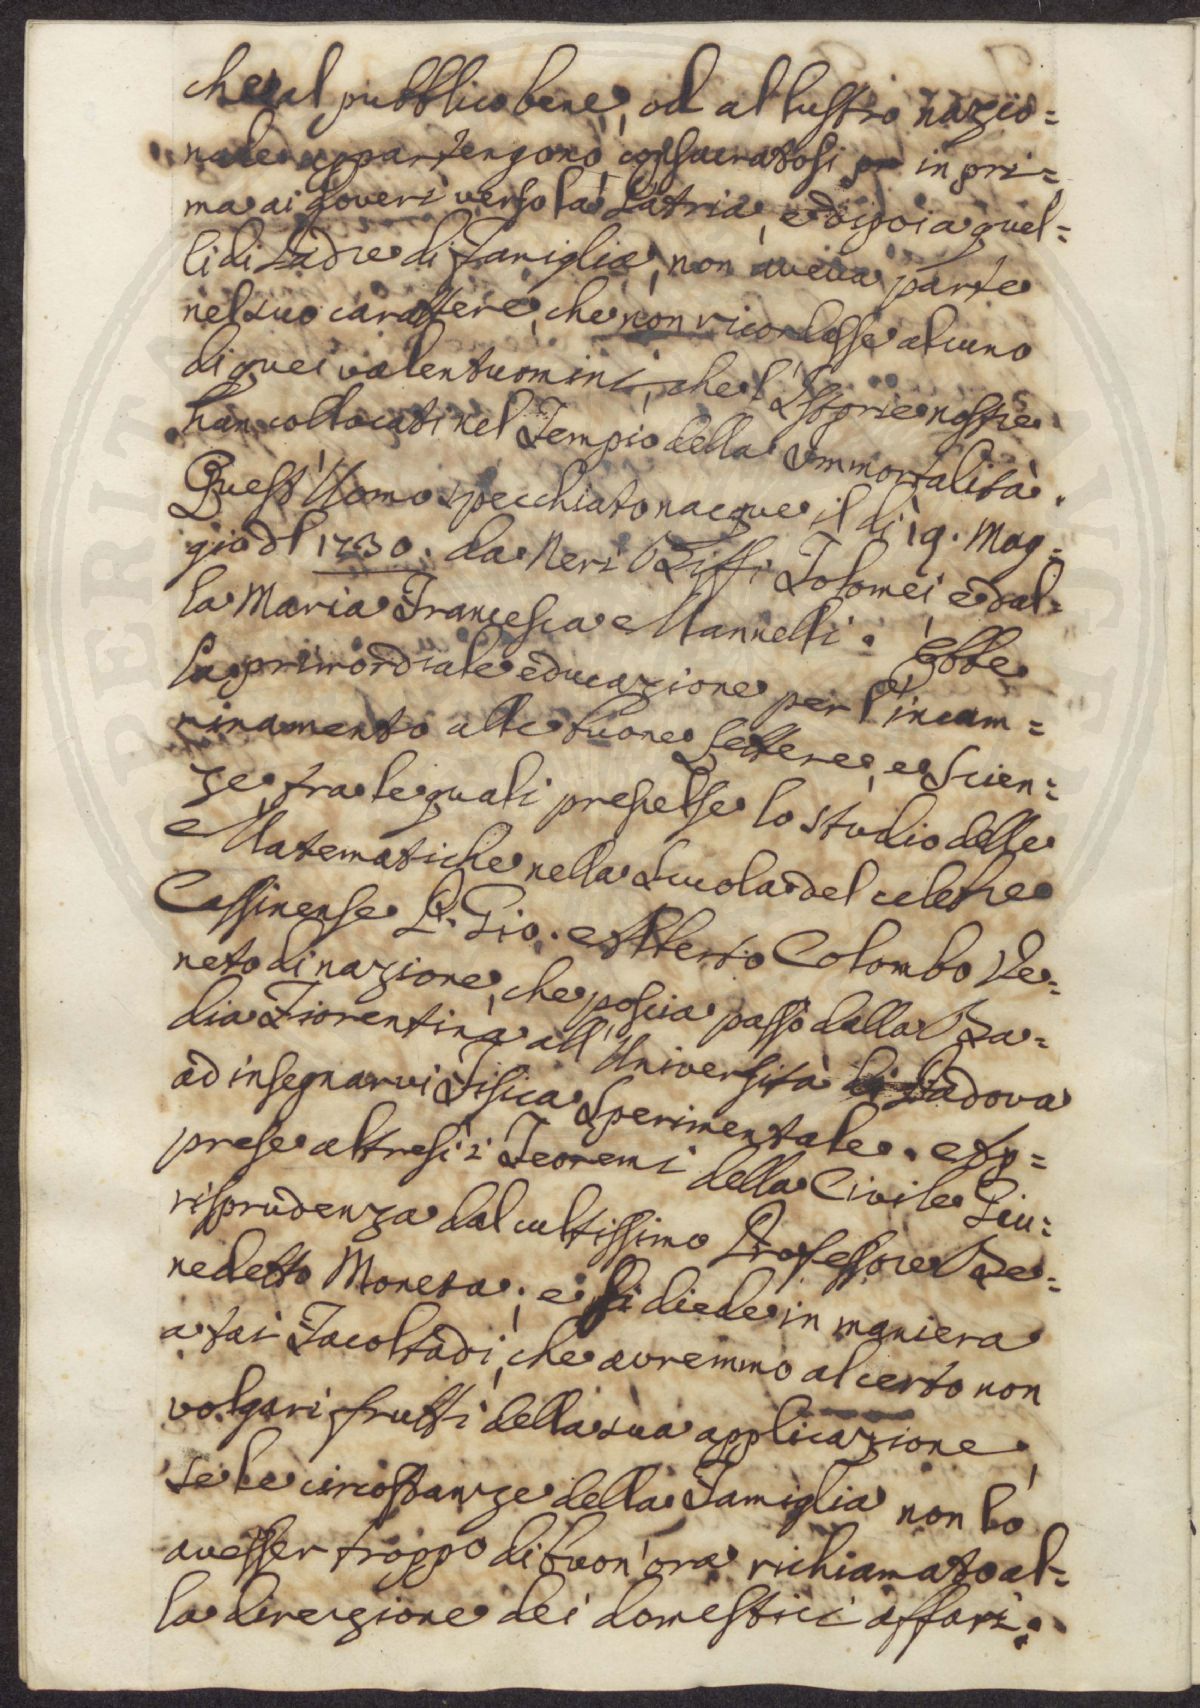 che al pubblico bene, od al lustro nazio=
nale appartengono, consacratosi in pri=
ma ai doveri verso la Patria, e dipoi a quel=
li di Padre di Famiglia, non aveva parte
nel suo carattere, che non ricordasse alcuno
di quei valentuomini, che l'Istorie nostre
han collocati nel Tempio della Immortalità.
Quest'Uomo specchiato nacque il dì 19. Mag=
gio del 1730. da Neri Biffi Tolomei, e dal=
la Maria Francesca Mannelli. Ebbe
la primordiale educazione per l'incam=
minamento alle buone Lettere, e Scien=
ze, fra le quali prescelse lo studio delle
Matematiche nella Scuola del celebre
Cassinense P. Gio. Alberto Colombo Ve=
neto di nazione, che poscia passò dalla Ba=
dia Fiorentina all'Università di Padova
ad insegnarvi Fisica Sperimentale. Ap=
prese altresì i Teoremi della Civile Giu=
risprudenza dal cultissimo Professore Be=
nedetto Moneta; e si diede in maniera
a tai Facoltadi, che avremmo al certo non
volgari frutti della sua applicazione,
se le circostanze della Famiglia non lo
avesser troppo di buon'ora richiamato al=
la direzione dei domestici affari.
PERITA